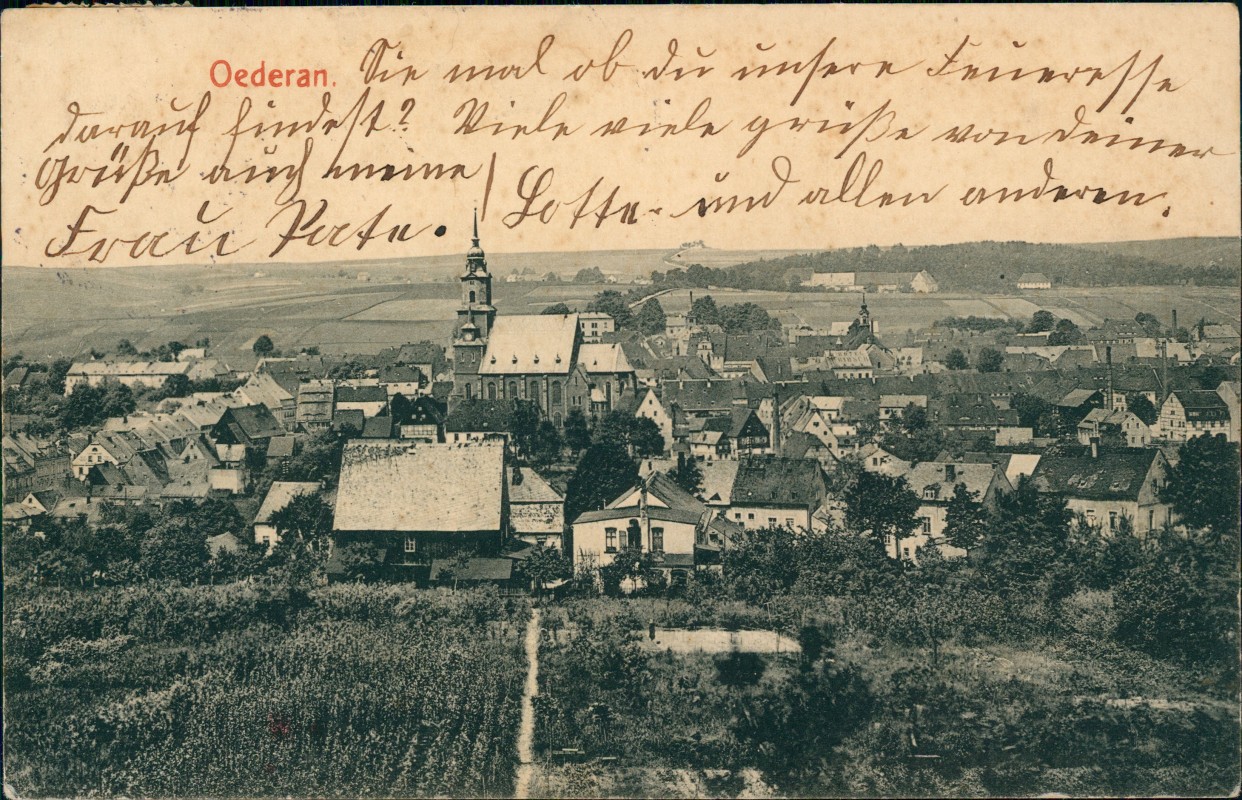 Oederan. Sie mal ob du unsere Feueresse
darauf findest? Viele viele grüße von deiner
Grüße auch meine / Lotte und allen anderen.
Frau Pate.